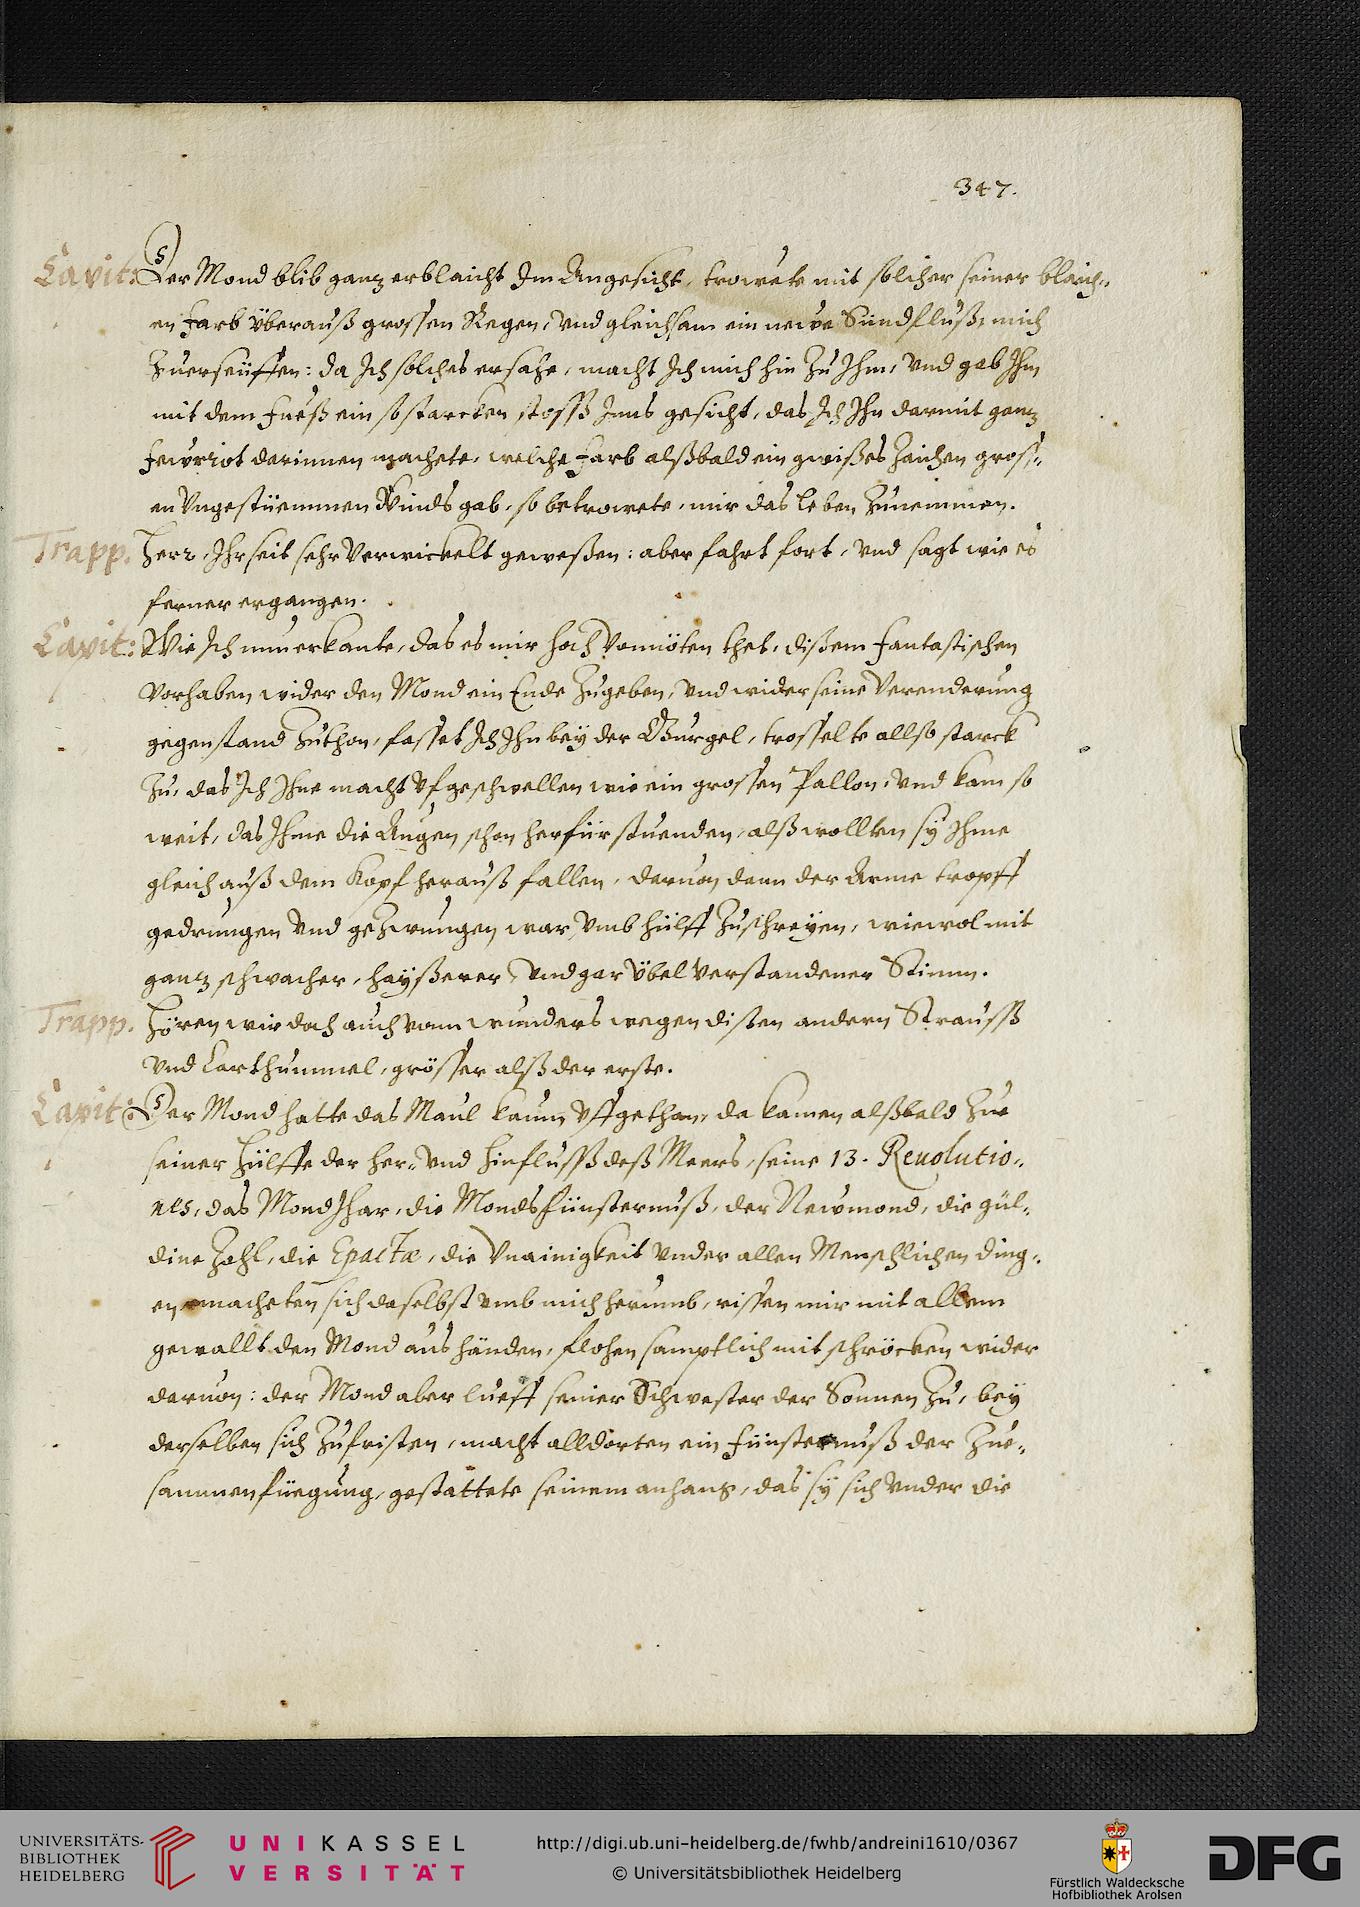 347.
Capit: Der Mond blib ganz erblaicht Im Angesicht, trowete mit solcher seiner blaich„
en Farb überauß grossen Regen, und gleichsam ein newe Sündfluß, mich
Zuerseüffen: da Ich solches ersahe, macht Ich mich hin Zu Ihm, und gab Ihm
mit dem Fueß ein so starcken stosß Inns gesicht, das Ich Ihn darmit ganz
Fewrrot darinnen machete, welche Farb alßbald ein gwißes Zaichen gross„
en Ungestüemmen Winds gab, so betrowete, mir das leben Zunemmen.
Trapp. Herr, Ihr seit sehr Verwickelt geweßen: aber fahrt fort, und sagt wie es
ferner ergangen.
Capit: Wie Ich nun erkante, das es mir hoch vonnöten thet, dißem Fantastischen
Vorhaben wider den Mond ein Ende Zugeben, und wider seine Verenderung
gegenstand Zuthon, fasset Ich Ihn bey der Gurgel, trosselte allso starck
Zu, das Ich Ihne macht Ufgeschwellen wie ein grossen Pallon, und kam so
weit, das Ihme die Augen schon herfür stuenden, alß wollten sy Ihme
gleich auß dem Kopf herauß fallen, daruon dann der Arme tropff
gedrungen und geZwungen war, umb hülff Zuschreyen, wiewol mit
ganz schwacher, hayßerer, und gar übel Verstandener Stimm.
Trapp. Hören wir doch auch vom wunders wegen dißen andern Strausß
und Larthummel, grösser alß der erste.
Capit: Der Mond hatte das Maul kaum Uffgethan, da kamen alßbald Zue
seiner Hülffe der her„ und hinflusß deß Meers, seine 13. Reuolutio„
nes, das Mond Jhar, die Monds fünsternuß, der Newmond, die gül„
dine Zahl, die Epactæ, die Unainigkeit under allen Menschlichen ding„
en, macheten sich daselbst umb mich herumb, rissen mir mit allem
gewallt den Mond aus händen, flohen samptlich mit schröcken wider
daruon: der Mond aber lueff seiner Schwester der Sonnen Zu, bey
derselben sich Zufristen, macht alldorten ein fünsternuß der Zue„
sammenfüegung, gestattete seinem anhang, das sy sich under die
UNIVERSITÄTS-
BIBLIOTHEK
HEIDELBERG
UNIKASSEL
VERSITÄT
http://digi.ub.uni-heidelberg.de/fwhb/andreini1610/0367
© Universitätsbibliothek Heidelberg
Fürstlich Waldecksche
Hofbibliothek Arolsen
DFG